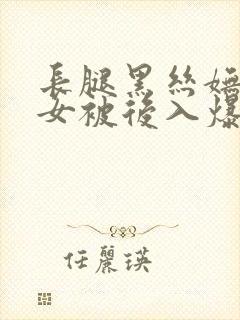 長腿黑絲嫵
女被後入爆
任麗瑛